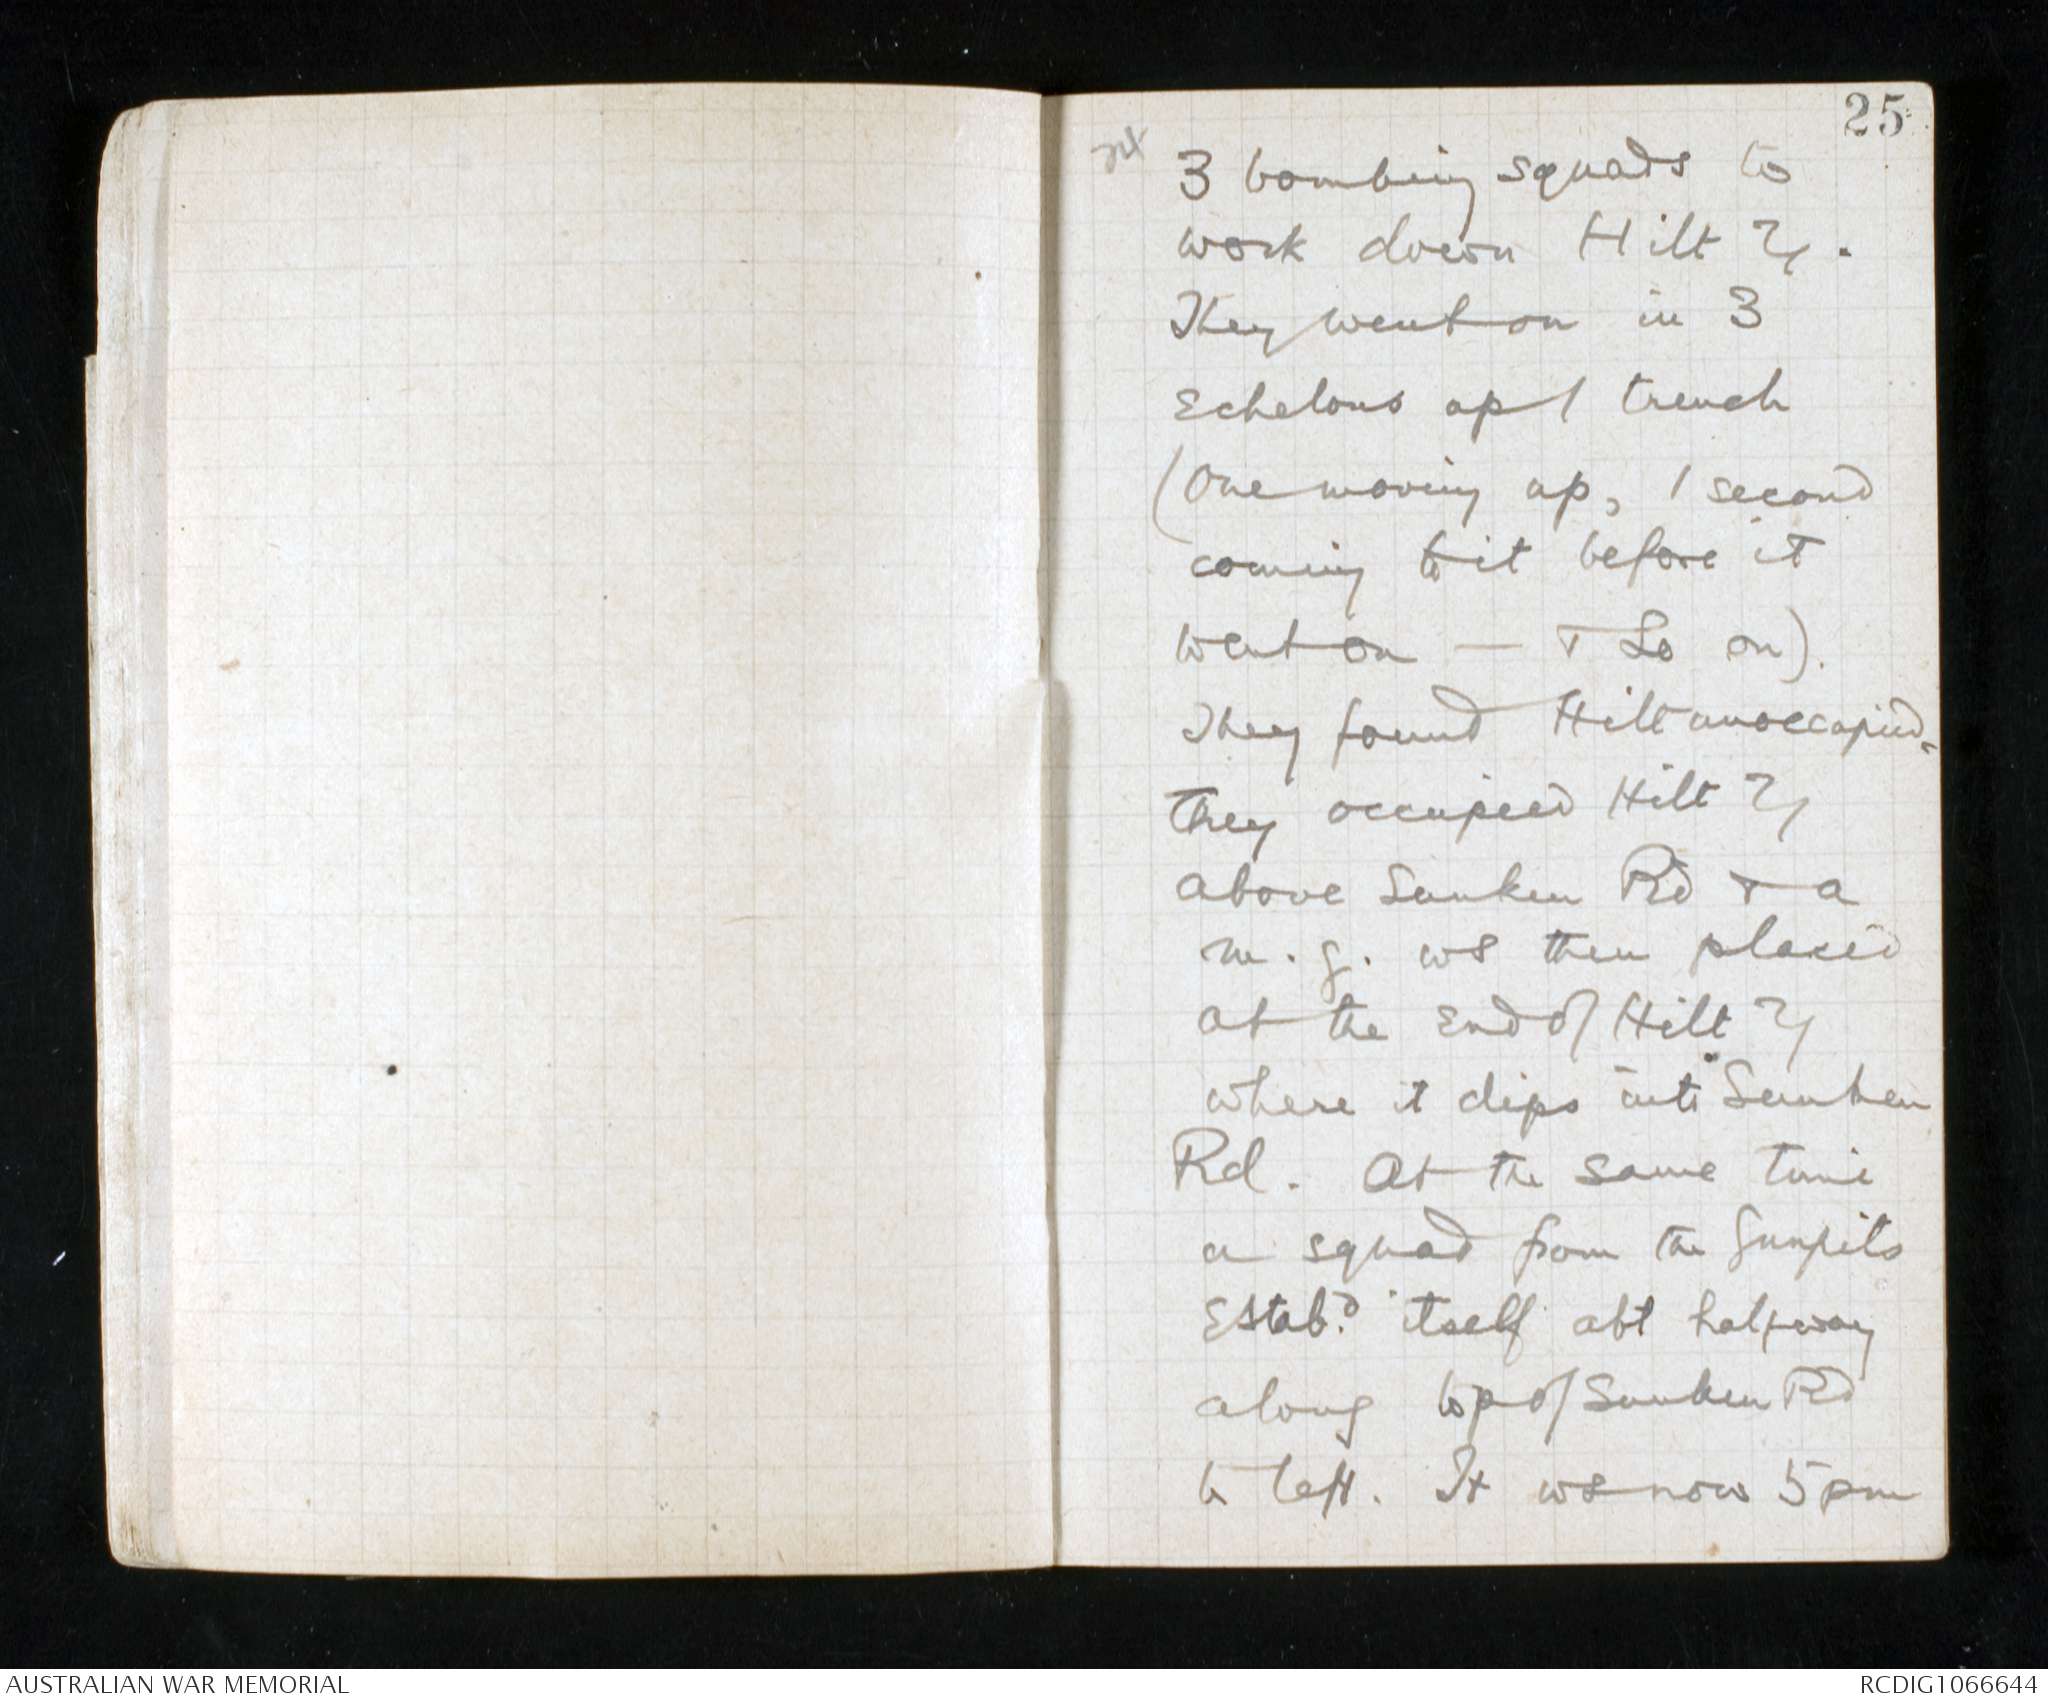 25
24
3 bombing squads to
work down Hilt Tr.
They went on in 3
Echelons up / trench
(One moving up, / second
coming to it before it
went on — & so on).
They found Hilt unoccupied.
they occupied Hilt Tr
above Sunken Rd & a
m.g. ws then placed
at the End of Hilt Tr
where it dips into Sunken
Rd. At the same time
a squad from the Gunpits
Estabd. itself abt halfway
along top of Sunken Rd
to left. It ws now 5pm
AUSTRALIAN WAR MEMORIAL
RCDIG1066644